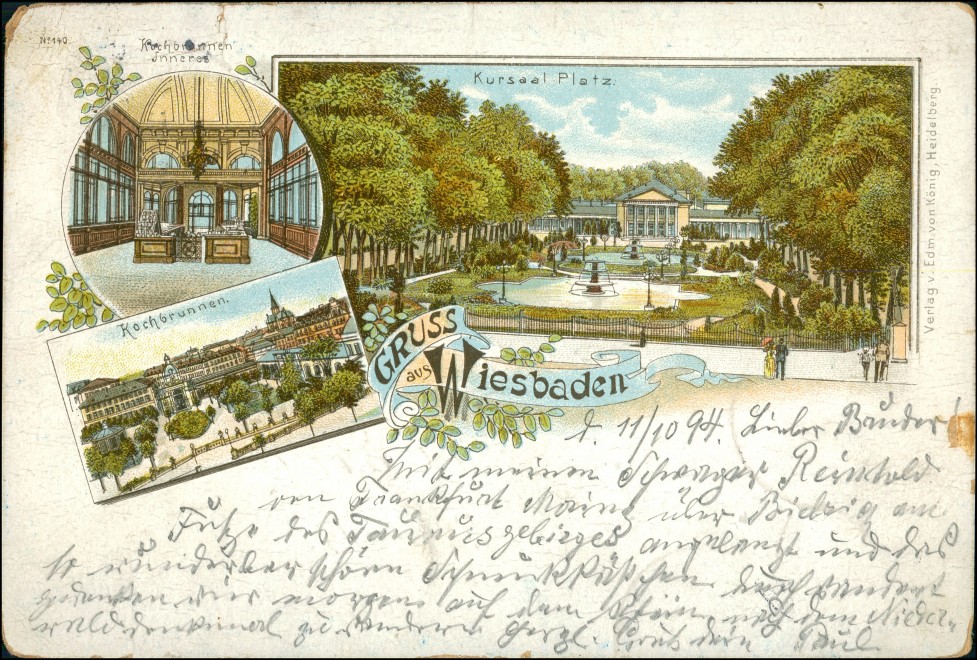 No 140.
Kochbrunnen
Inneres
Kursaal Platz.
Verlag v. Edm. von König, Heidelberg.
Kochbrunnen.
GRUSS
aus Wiesbaden
d. 11/10 94. Lieber Bruder!
Mit meinem Schwager Reinhold
von Frankfurt Mainz über am
Fuße des Taunusgebirges angelangt und das
so wunderbar schöne durchwandert
gedenken wir morgen auf dem Rhein nach dem Nieder-
walddenkmal zu wandern Herzl. Grus dein Paul